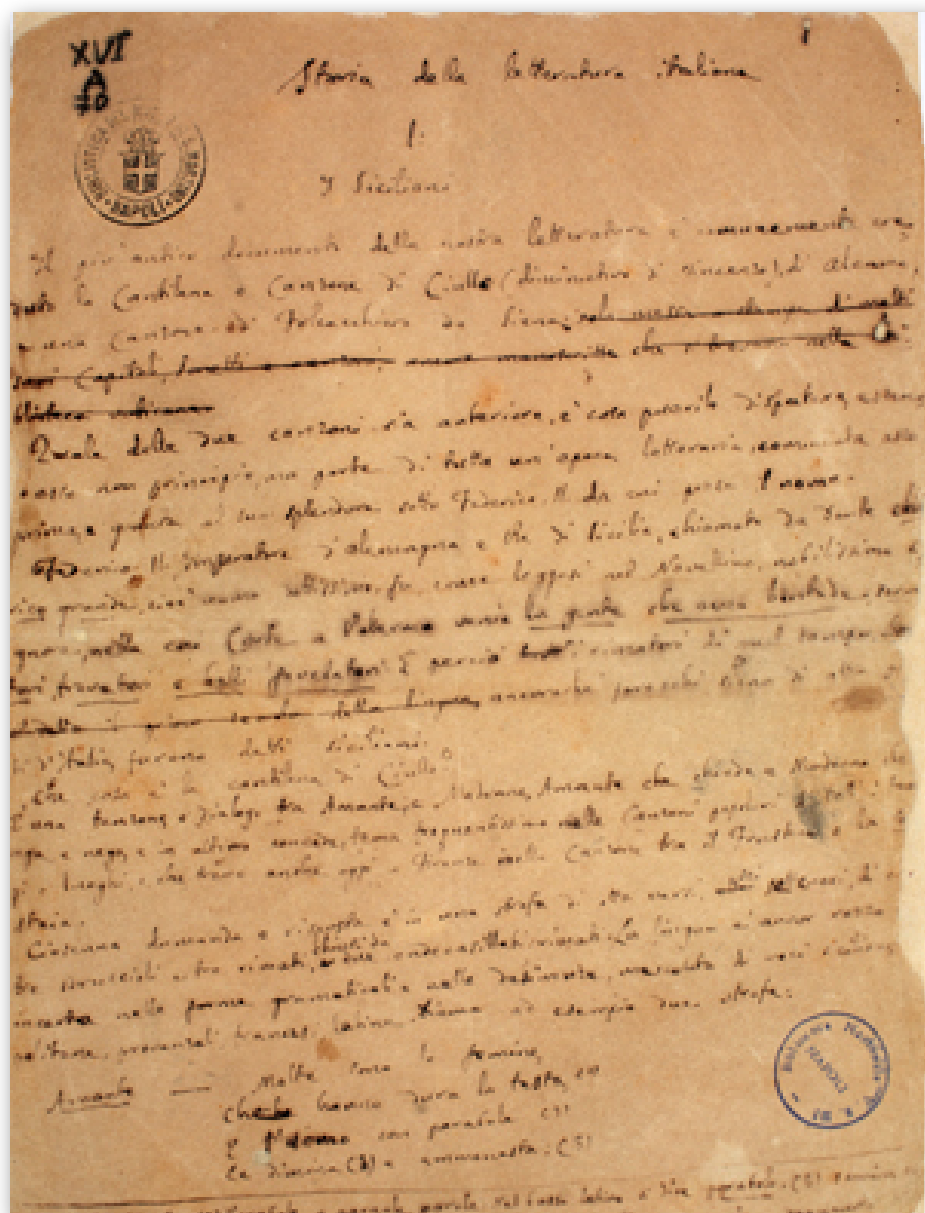 XVI
A
70
1
Storia della letteratura italiana
I.
I Siciliani
Il più antico documento della nostra letteratura è comunemente cre-
duto la Cantilena o Canzone di Ciullo (diminutivo di Vincenzo) di Alcamo,
e una Canzone di Folcacchiero da Siena;
che si trovano nelle Bi-
blioteca vaticana
Quale delle due canzoni sia anteriore, è cosa puerile disputare, essendo
esse non principio, ma parte di tutta un'epoca letteraria, cominciata assai
prima, e giunta al suo splendore sotto Federico II, da cui prese il nome.
Federico II, imperatore d'Alemagna e Re di Sicilia, chiamato da Dante
grande, cioè fu, come leggesi nel Novellino, nobilissimo
nella cui Corte a Palermo venia la gente che avea bontade, sona-
tori, trovatori e belli favellatori. E perciò i rimatori di quel tempo,
il primo della lingua, ancorchè parecchi sieno di altra
d'Italia, furono detti siciliani.
Che cosa è la cantilena di Ciullo?
È una tenzone, o dialogo tra Amante e Madonna, Amante che chiede, e Madonna che
nega, e nega, e in ultimo concede, tema frequentissimo nelle Canzoni popolari di tutt'i tem-
pi e luoghi, e che trovo anche oggi a Firenze nella Canzone tra il Frustino e la

Ciascuna domanda e risposta è in una strofa di otto versi, settenari, di cui
tre sdruccioli e tre rimati, chiusi da due endecasillabi rimati. La lingua è ancor rozza
incerta nelle forme grammaticali e nelle desinenze, mescolata di voci siciliane,
napolitane, provenzali, francesi, latine. Diamo ad esempio due strofe:
Amante — Molte sono le femine,
che hanno dura la testa,
E l'uomo con parabole
Le dimina e ammonesta:
NAPOLI